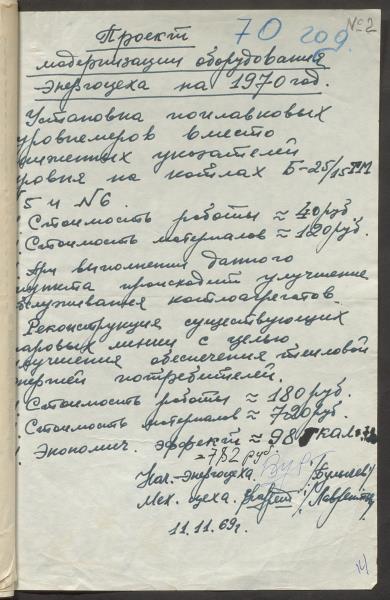 №2
70 год.
Проект
модернизации оборудования
Энергоцеха на 1970 год.
Установка поплавковых
уровнемеров вместо
сниженных указателей
уровня на котлах Б-25/15 ГМ
5 и №6.
Стоимость работы ≈ 40 руб
Стоимость материалов ≈ 120 руб.
При выполнении данного
пункта происходит улучшение
обслуживания котлоагрегатов.
Реконструкция существующих
паровых линий с целью
улучшения обеспечения тепловой
энергией потребителей.
Стоимость работы ≈ 180 руб.
Стоимость материалов ≈ 720 руб.
Экономич. эффект ≈ 98 Гкал
= 782 руб
Нач. Энергоцеха
Мех. цеха.
11.11.69г.